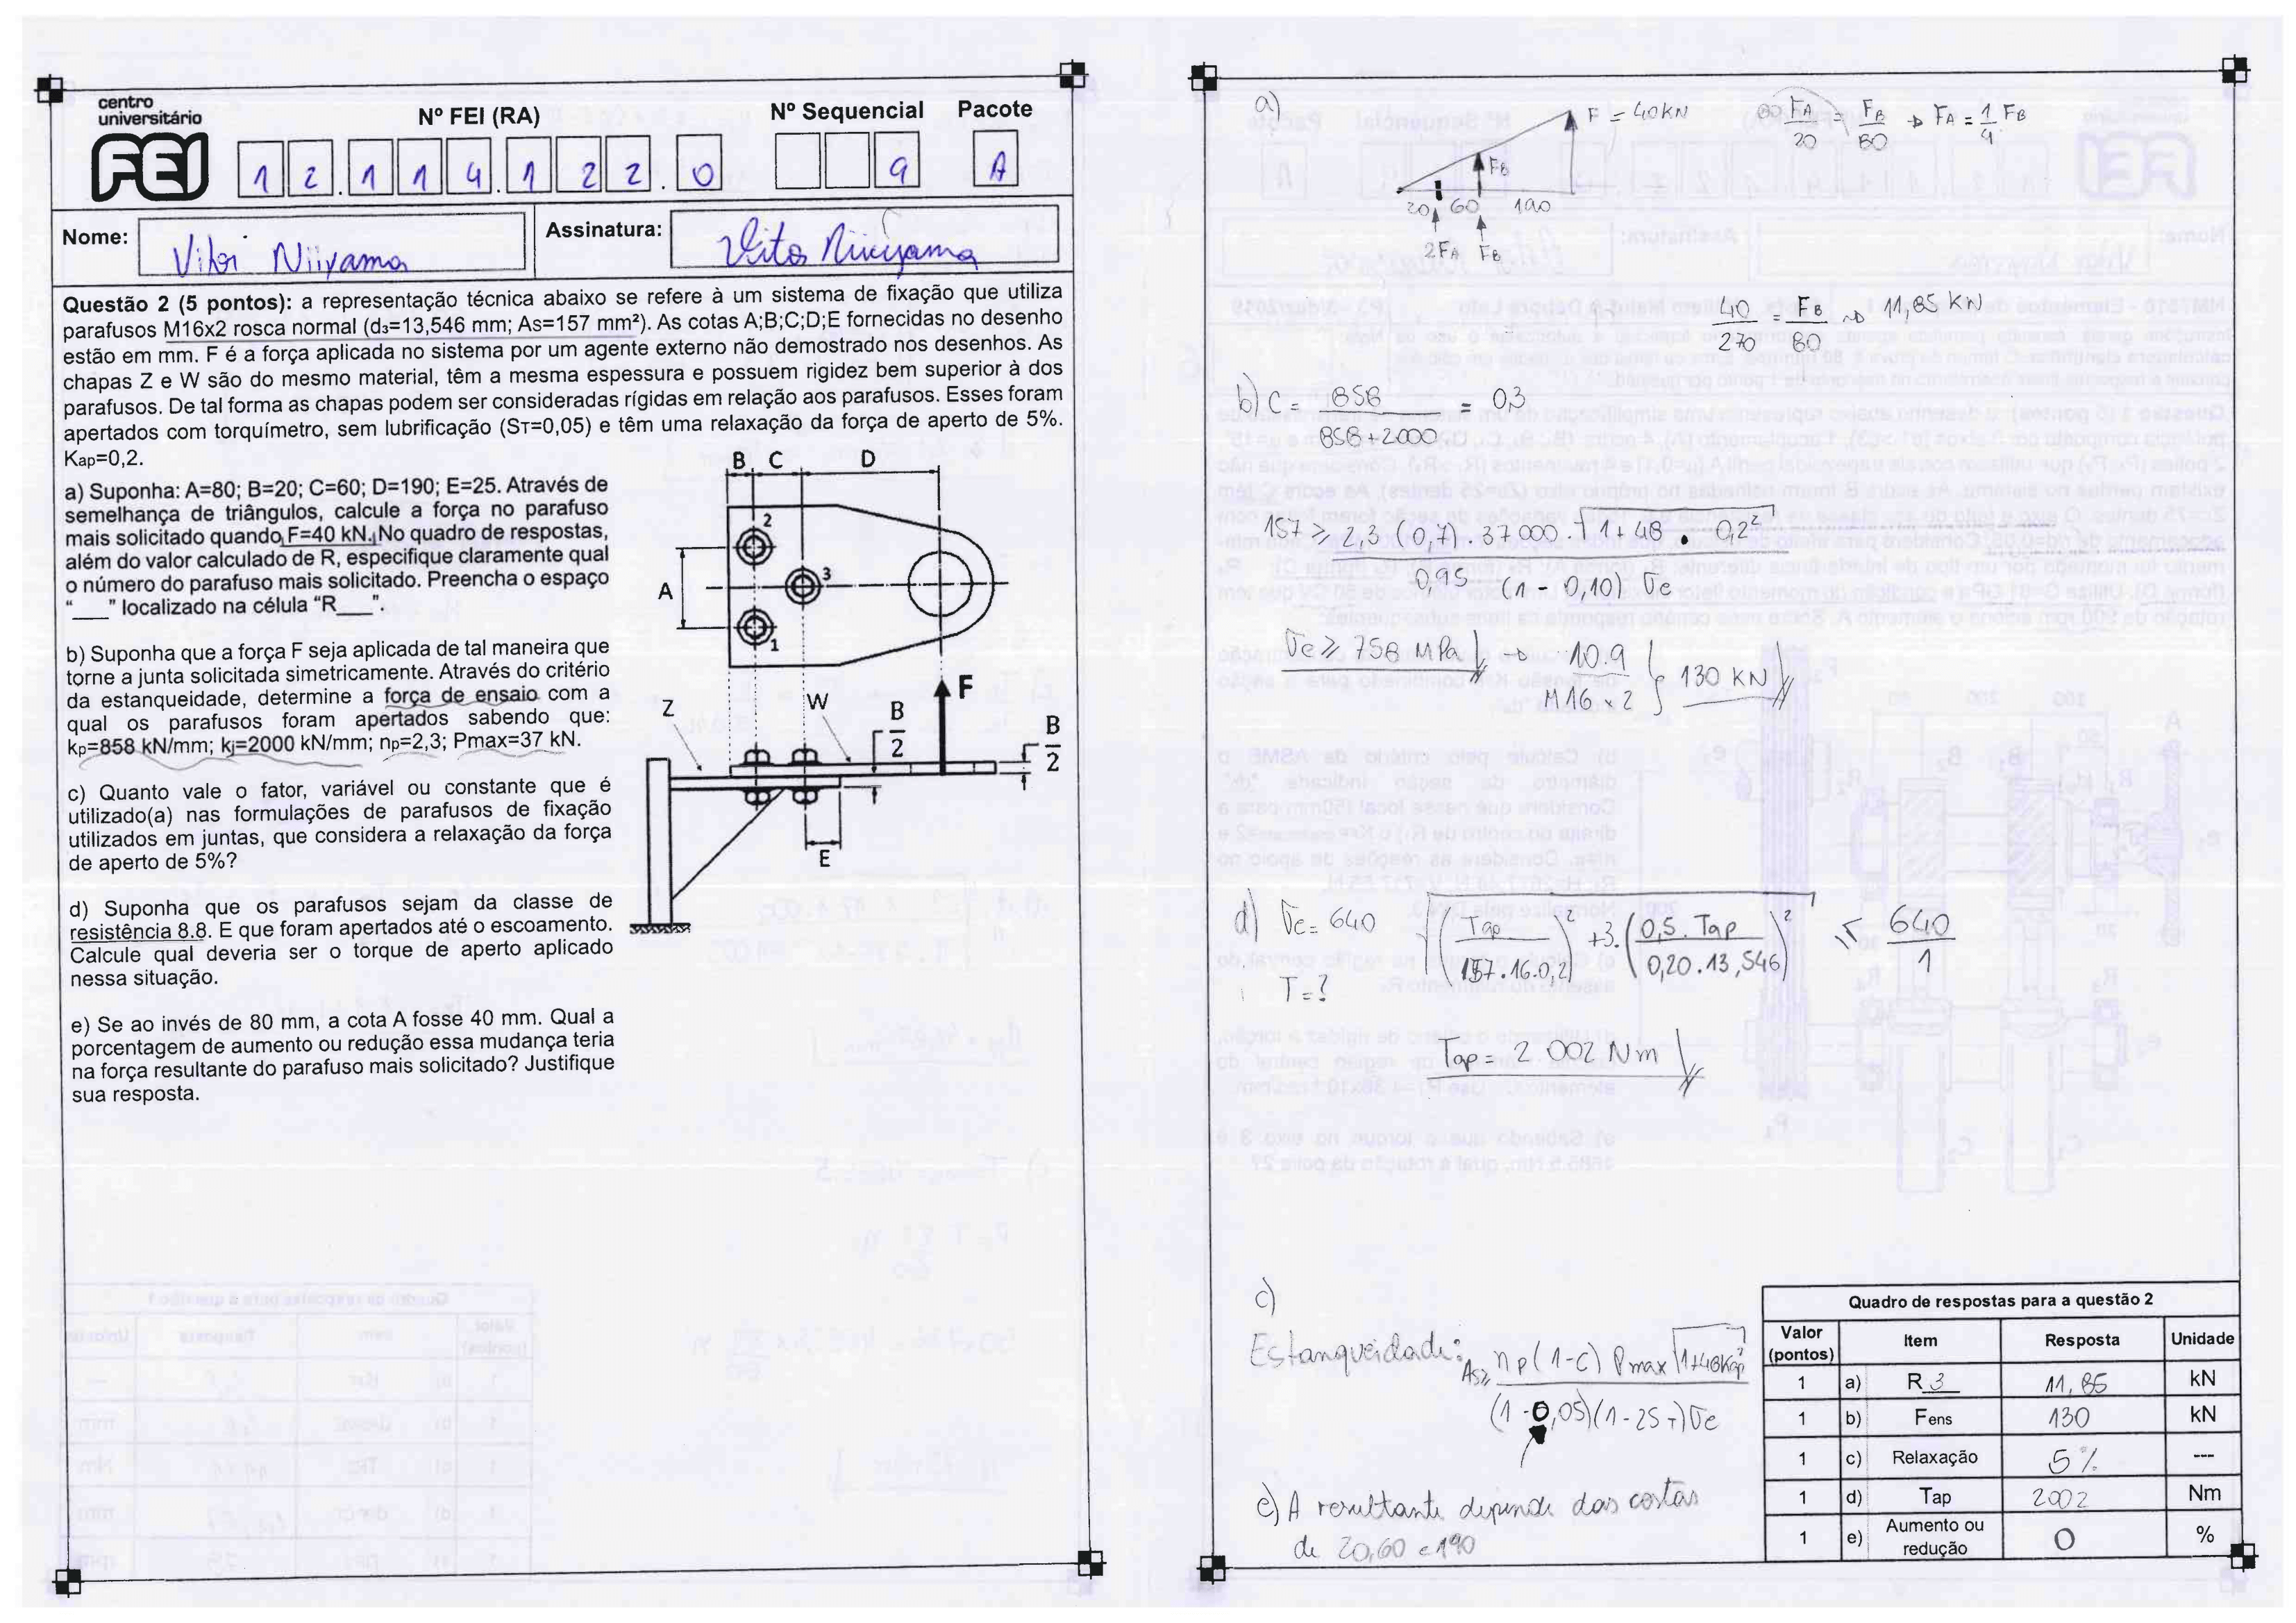 centro
universitário
FEI
Nº FEI (RA)
Nº Sequencial
Pacote
1 2 . 1 1 4 . 1 2 2 . 0
9
A
Nome:
Vitor Niiyama
Assinatura:
Vitor Niiyama
Questão 2 (5 pontos): a representação técnica abaixo se refere à um sistema de fixação que utiliza
parafusos M16x2 rosca normal (d₃=13,546 mm; As=157 mm²). As cotas A;B;C;D;E fornecidas no desenho
estão em mm. F é a força aplicada no sistema por um agente externo não demostrado nos desenhos. As
chapas Z e W são do mesmo material, têm a mesma espessura e possuem rigidez bem superior à dos
parafusos. De tal forma as chapas podem ser consideradas rígidas em relação aos parafusos. Esses foram
apertados com torquímetro, sem lubrificação (ST=0,05) e têm uma relaxação da força de aperto de 5%.
Kap=0,2.
a) Suponha: A=80; B=20; C=60; D=190; E=25. Através de
semelhança de triângulos, calcule a força no parafuso
mais solicitado quando F=40 kN. No quadro de respostas,
além do valor calculado de R, especifique claramente qual
o número do parafuso mais solicitado. Preencha o espaço
“___” localizado na célula “R___”.
b) Suponha que a força F seja aplicada de tal maneira que
torne a junta solicitada simetricamente. Através do critério
da estanqueidade, determine a força de ensaio com a
qual os parafusos foram apertados sabendo que:
kp=858 kN/mm; kj=2000 kN/mm; np=2,3; Pmax=37 kN.
c) Quanto vale o fator, variável ou constante que é
utilizado(a) nas formulações de parafusos de fixação
utilizados em juntas, que considera a relaxação da força
de aperto de 5%?
d) Suponha que os parafusos sejam da classe de
resistência 8.8. E que foram apertados até o escoamento.
Calcule qual deveria ser o torque de aperto aplicado
nessa situação.
e) Se ao invés de 80 mm, a cota A fosse 40 mm. Qual a
porcentagem de aumento ou redução essa mudança teria
na força resultante do parafuso mais solicitado? Justifique
sua resposta.
B C D
2
3
A
1
F
Z
W
B
2
B
2
E
a)
F = 40 kN
FB
20 60 190
2FA FB
80 FA/20 = FB/80 → FA = 1/4 FB
40/270 = FB/80 → 11,85 kN
b) C = 858/(858+2000) = 0,3
157 ≥ 2,3 (0,7) . 37 000 . √(1+48 . 0,2²)
0,95 (1 - 0,10) σe
σe ≥ 758 MPa → 10.9
M16 x 2 } 130 kN
d) σe = 640
√((Tap/(157.16.0,2))² + 3.(0,5.Tap/(0,20.13,546))²) ≤ 640/1
T = ?
Tap = 2 002 Nm
c)
Estanqueidade: As ≥ np (1-c) Pmax √(1+48Kap²)
(1-0,05)(1-2ST) σe
e) A resultante depende das cotas
de 20,60 e 190
Quadro de respostas para a questão 2
Valor (pontos) Item Resposta Unidade
1 a) R 3 11,85 kN
1 b) Fens 130 kN
1 c) Relaxação 5% ---
1 d) Tap 2002 Nm
1 e) Aumento ou redução 0 %